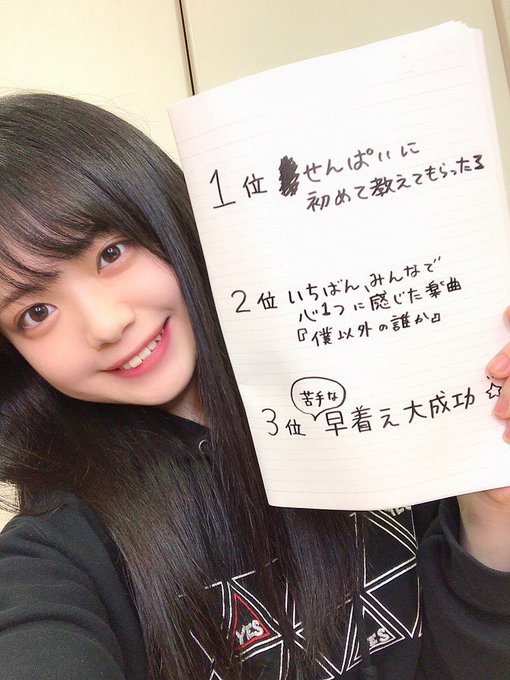 1位 せんぱいに
初めて教えてもらったる
2位 いちばん、みんなで
心1つに感じた楽曲
『僕以外の誰か』
苦手な
3位 早着え大成功☆
YES
YES